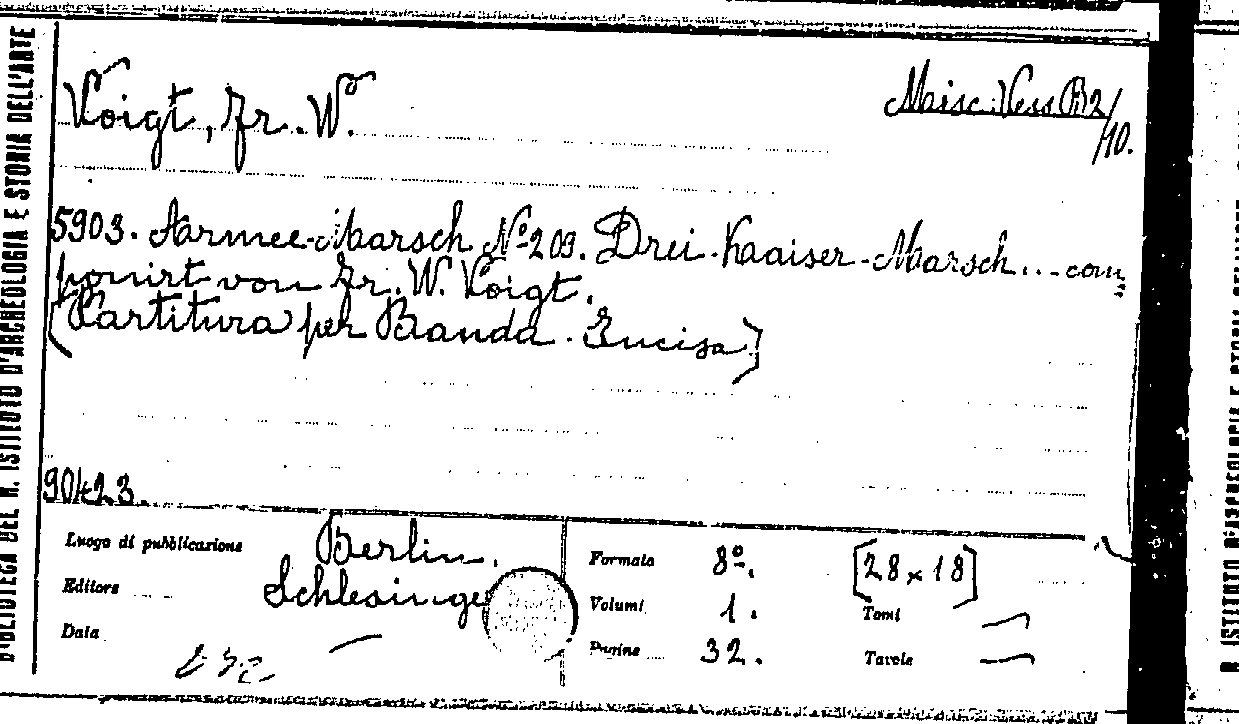 BIBLIOTECA DEL R. ISTITUTO D'ARCHEOLOGIA E STORIA DELL'ARTE
Voigt, Fr. W.
Misc. Vess. B 2/10.
5903. Armee-Marsch Nº 209. Drei-Kaaiser-Marsch... com
ponirt von Fr. W. Voigt.
(Partitura per Banda. Incisa)
Luogo di pubblicazione Berlin.
Editore Schlesinge
Data
Formato 8º. [28 x 18]
Volumi 1. Tomi —
Pagine 32. Tavole —